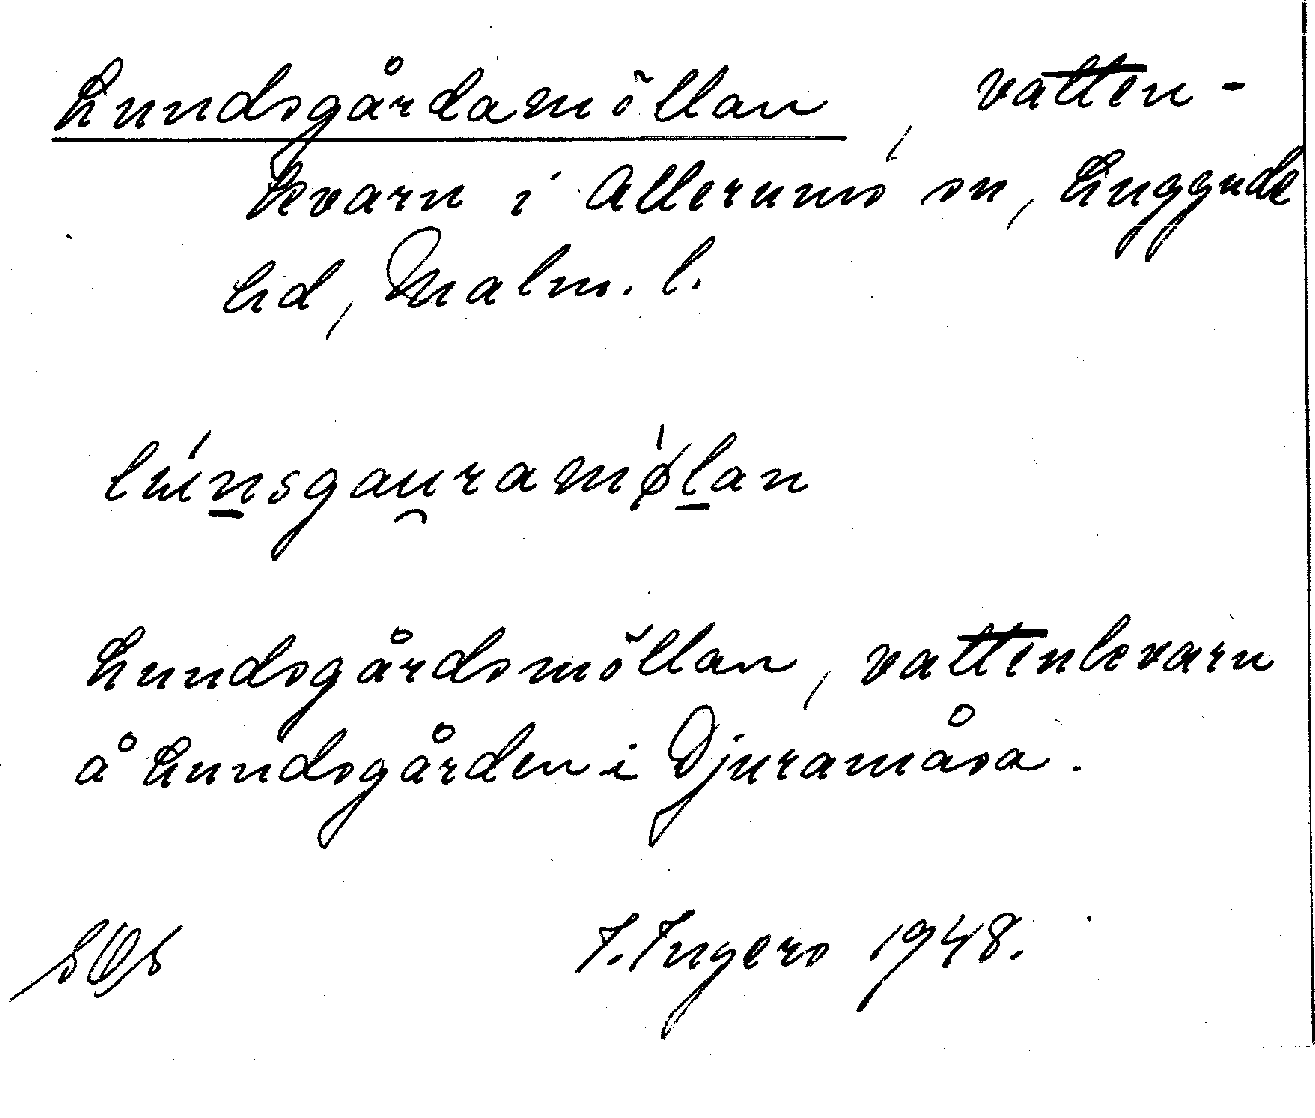 Lundsgårdamöllan, vatten-
kvarn i Allerums sn, Luggude
hd, Malm. l.
lúnsgau̯ramǿlan
Lundsgårdsmöllan, vattenkvarn
å Lundsgården i Djuramåsa.
I. Ingers 1948.